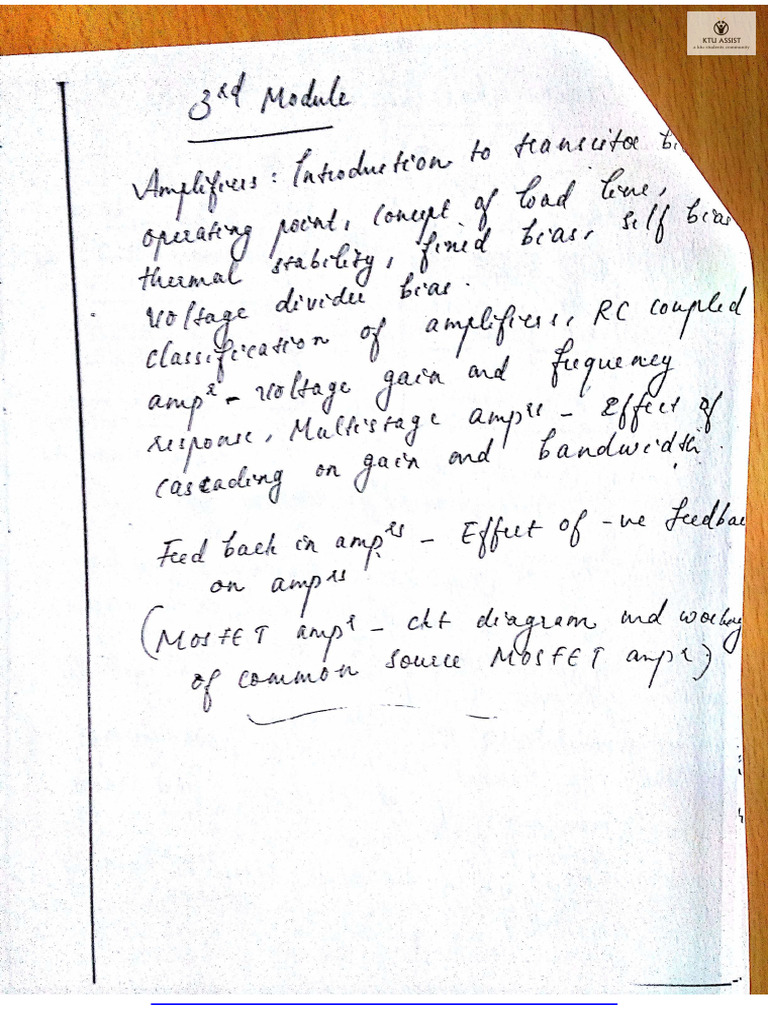 KTU ASSIST
a ktu students community
3rd Module
Amplifiers : Introduction to transistor
operating point, concept of load line,
thermal stability, fixed bias, self bias
voltage divider bias.
classification of amplifiers, RC coupled
ampr - voltage gain and frequency
response, Multistage amprs - Effect of
cascading on gain and bandwidth.
Feed back in amprs - Effect of -ve feedbac
on amprs
(MOSFET ampr - ckt diagram and working
of common source MOSFET ampr)